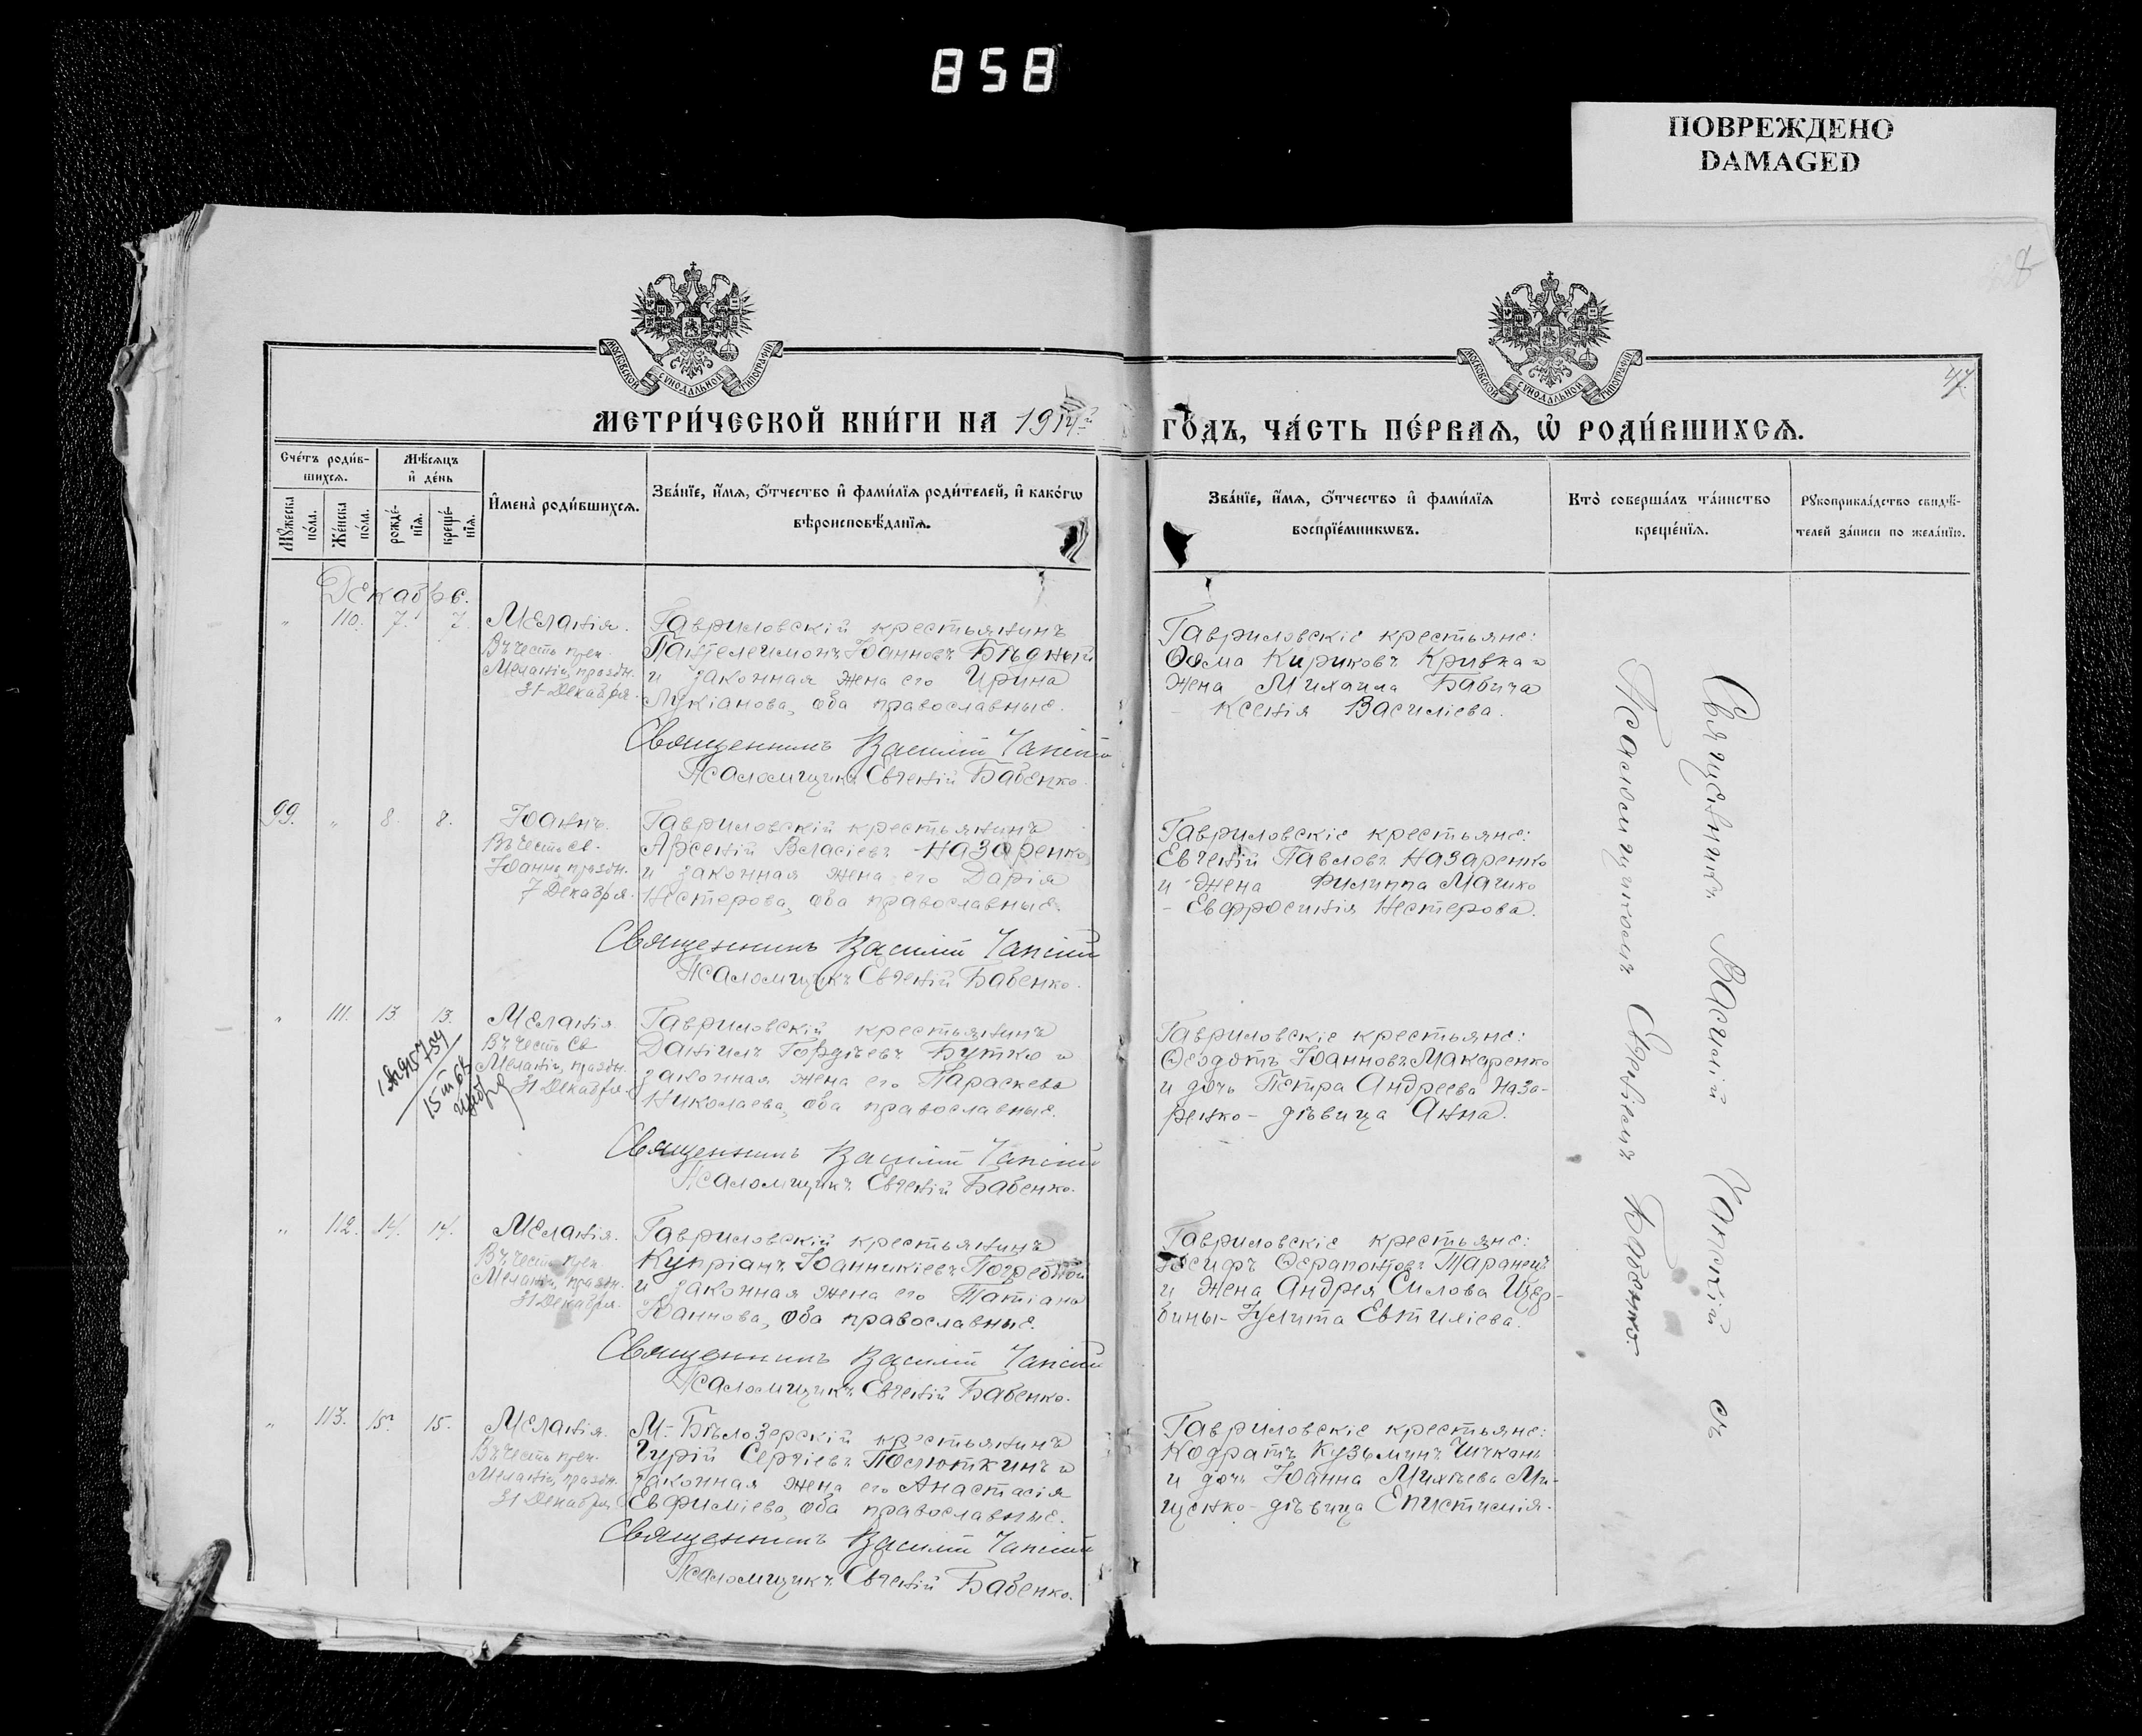 858
ПОВРЕЖДЕНО
DAMAGED
8
47.
МОСКОВСКОЙ СѴНОДАЛЬНОЙ ТИПОГРАФІИ
МОСКОВСКОЙ СѴНОДАЛЬНОЙ ТИПОГРАФІИ
МЕТРИ́ЧЕСКОЙ КНИ́ГИ НА 1914й ГО́ДЪ, ЧА́СТЬ ПЕ́РВАѦ, Ѡ҆ РОДИ́ВШИХСѦ.
Сче́тъ роди́в-
шихсѧ.
Мꙋ́жеска по́ла.
Же́нска по́ла.
Мѣ́сѧцъ
и҆ де́нь
рожде́-
нїѧ.
креще́-
нїѧ.
И҆мена̀ роди́вшихсѧ.
Зва́нїе, и҆́мѧ, ѻ҆́тчество и҆ фами́лїѧ роди́телей, и҆ како́гѡ
вѣроисповѣ́данїѧ.
Зва́нїе, и҆́мѧ, ѻ҆́тчество и҆ фами́лїѧ
воспрїе́мникѡвъ.
Кто̀ соверша́лъ та́инство
креще́нїѧ.
Рꙋкоприкла́дство свидѣ́-
телей за́писи по жела́нїю.
Декабрь.
" 110. 7. 7. Меланія.
Въ честь преп.
Меланіи, праздн.
31 Декабря.
Гавриловскій крестьянинъ
Пантелеимонъ Іоанновъ Бѣдный
и законная жена его Ирина
Лукіанова, оба православные.
Священникъ Василій
Псаломщикъ Евгеній Бабенко.
Гавриловскіе крестьяне:
Ѳома Кириковъ Кривка и
жена Михаила Бабича
Ксенія Василіева.
99. " 8. 8. Іоаннъ.
Въ честь св.
Іоанна, праздн.
7 Декабря.
Гавриловскій крестьянинъ
Арсеній Власіевъ Назаренко
и законная жена его Дарія
Нестерова, оба православные.
Священникъ Василій
Псаломщикъ Евгеній Бабенко.
Гавриловскіе крестьяне:
Евгеній Павловъ Назаренко
и жена Филиппа Мачко
- Евфросинія Нестерова.
" 111. 13. 13. Меланія.
Въ честь св.
Меланіи, праздн.
31 Декабря.
Гавриловскій крестьянинъ
Даніилъ Гордѣевъ Бутко и
законная жена его Параскева
Николаева, оба православные.
Священникъ Василій
Псаломщикъ Евгеній Бабенко.
Гавриловскіе крестьяне:
Ѳеодотъ Іоанновъ Макаренко
и дочь Петра Андреева Наза-
ренко - дѣвица Анна.
" 112. 14. 14. Меланія.
Въ честь преп.
Меланіи, праздн.
31 Декабря.
Гавриловскій крестьянинъ
Купріанъ Іоанникіевъ Погребной
и законная жена его Татіана
Іоаннова, оба православные.
Священникъ Василій
Псаломщикъ Евгеній Бабенко.
Гавриловскіе крестьяне:
Іосифъ Ѳерапонтовъ Таранецъ
и жена Андрея Силова Щер-
бины - Іулита Евтиліева.
" 113. 15. 15. Меланія.
Въ честь преп.
Меланіи, праздн.
31 Декабря.
М.-Бѣлозерскій крестьянинъ
Гурій Сергіевъ Послюткинъ и
законная жена его Анастасія
Евфиміева, оба православные.
Священникъ Василій
Псаломщикъ Евгеній Бабенко.
Гавриловскіе крестьяне:
Кодратъ Кузьминъ Чичканъ
и дочь Іоанна Михѣева Ми-
щенко - дѣвица Епистимія.
Священникъ Василій съ
Псаломщикомъ Евгеніемъ Бабенко.